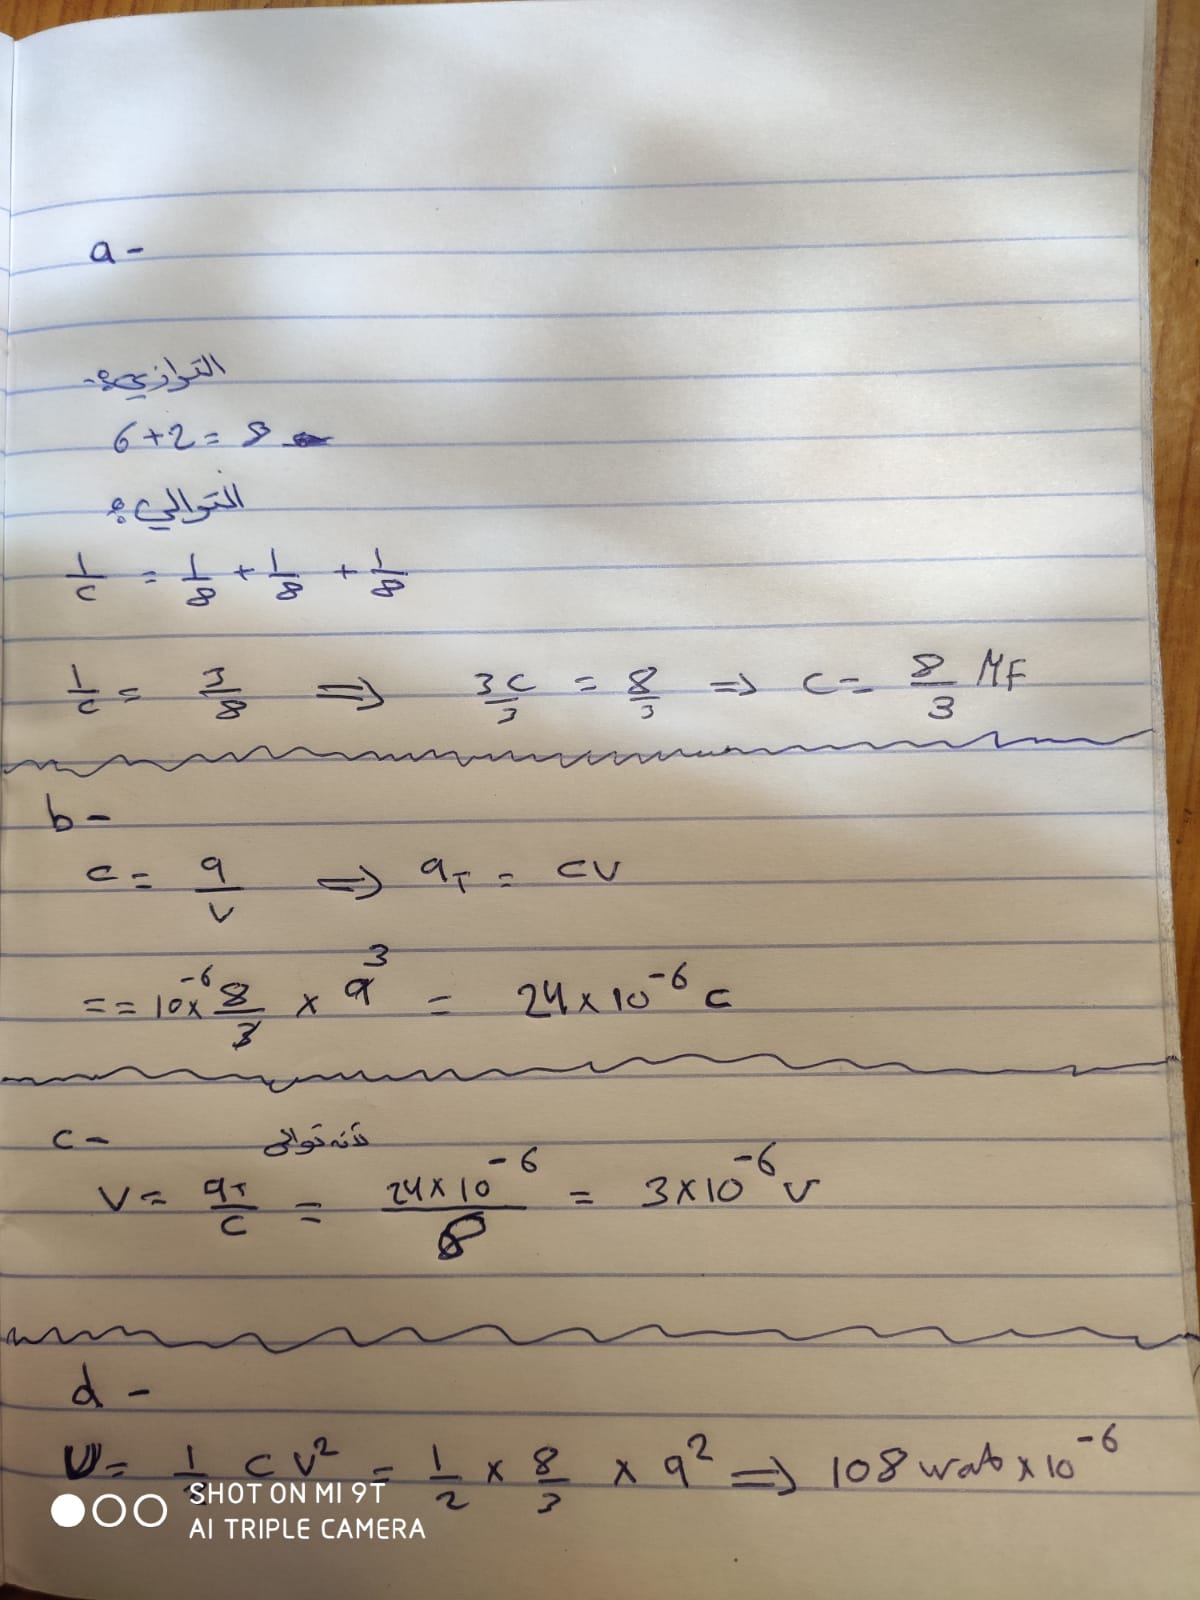 a -
التوازي:-
6+2= 8
التوالي:
1/c = 1/8 + 1/8 + 1/8
1/c = 3/8 ⇒ 3c/3 = 8/3 ⇒ c = 8/3 MF
b -
c = q/v ⇒ qT = cv
= = 10^-6 × 8/3 × 9^3 = 24×10^-6 c
c - لأنه توالي
v = qT/c = 24×10^-6/8 = 3×10^-6 v
d -
U = 1/2 c v^2 = 1/2 × 8/3 × 9^2 ⇒ 108 wat × 10^-6
SHOT ON MI 9T
AI TRIPLE CAMERA